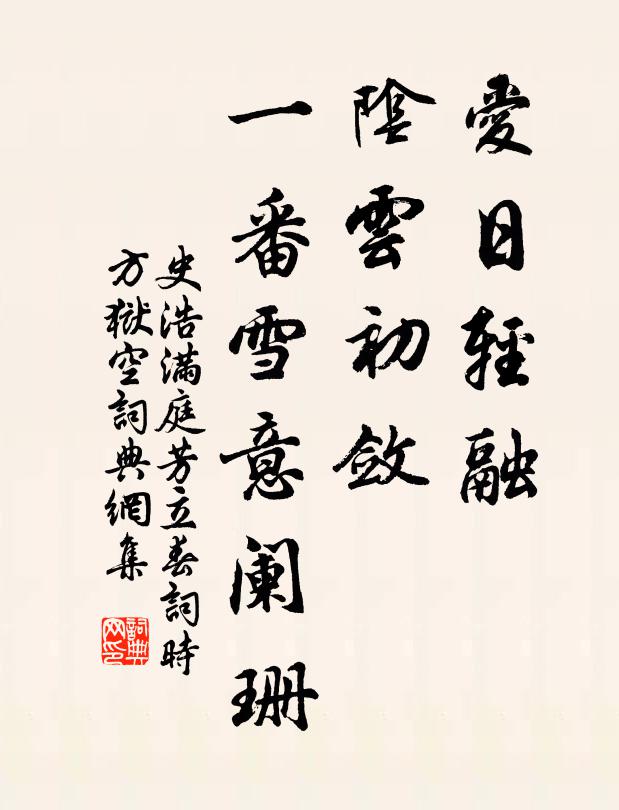 愛日輕融
陰雲初斂
一番雪意阑珊
史浩滿庭芳立春詞時
方獄空詞典網集
詞典
网印